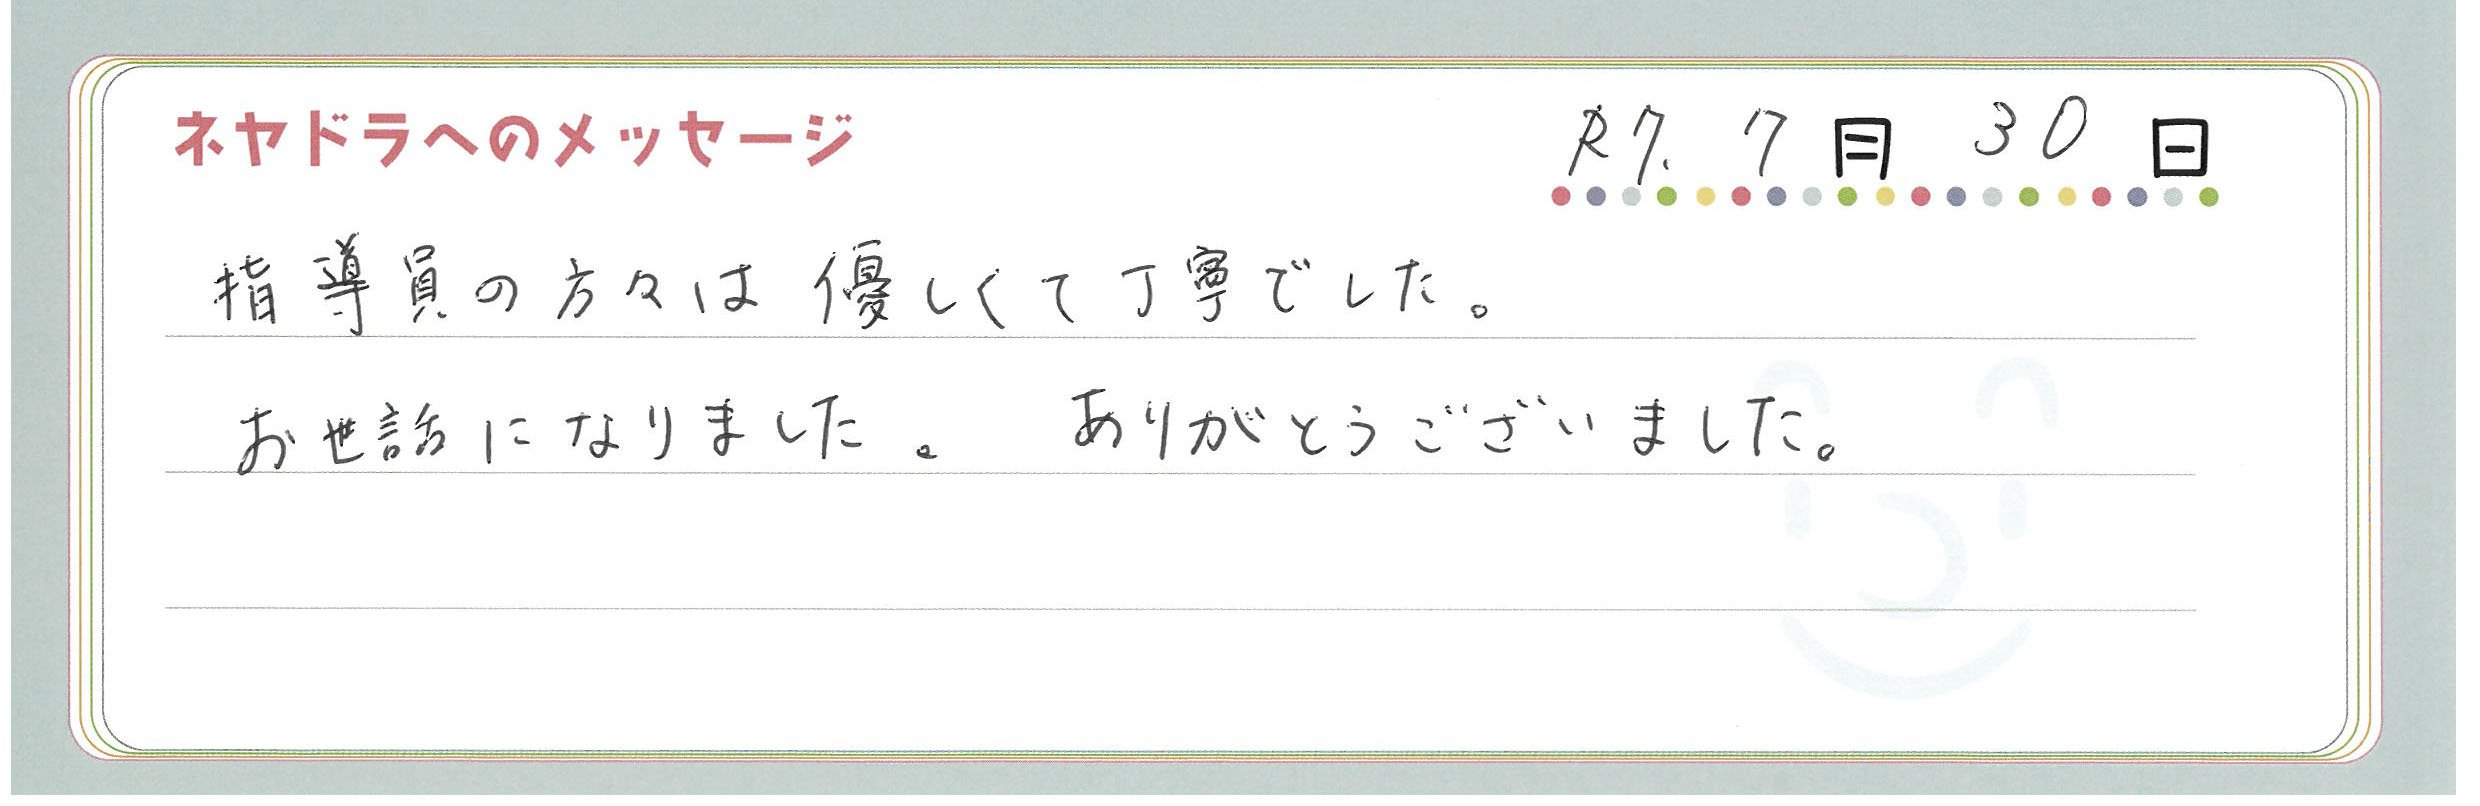 ネヤドラへのメッセージ
R7. 7月 30日
指導員の方々は優しくて丁寧でした。
お世話になりました。 ありがとうございました。